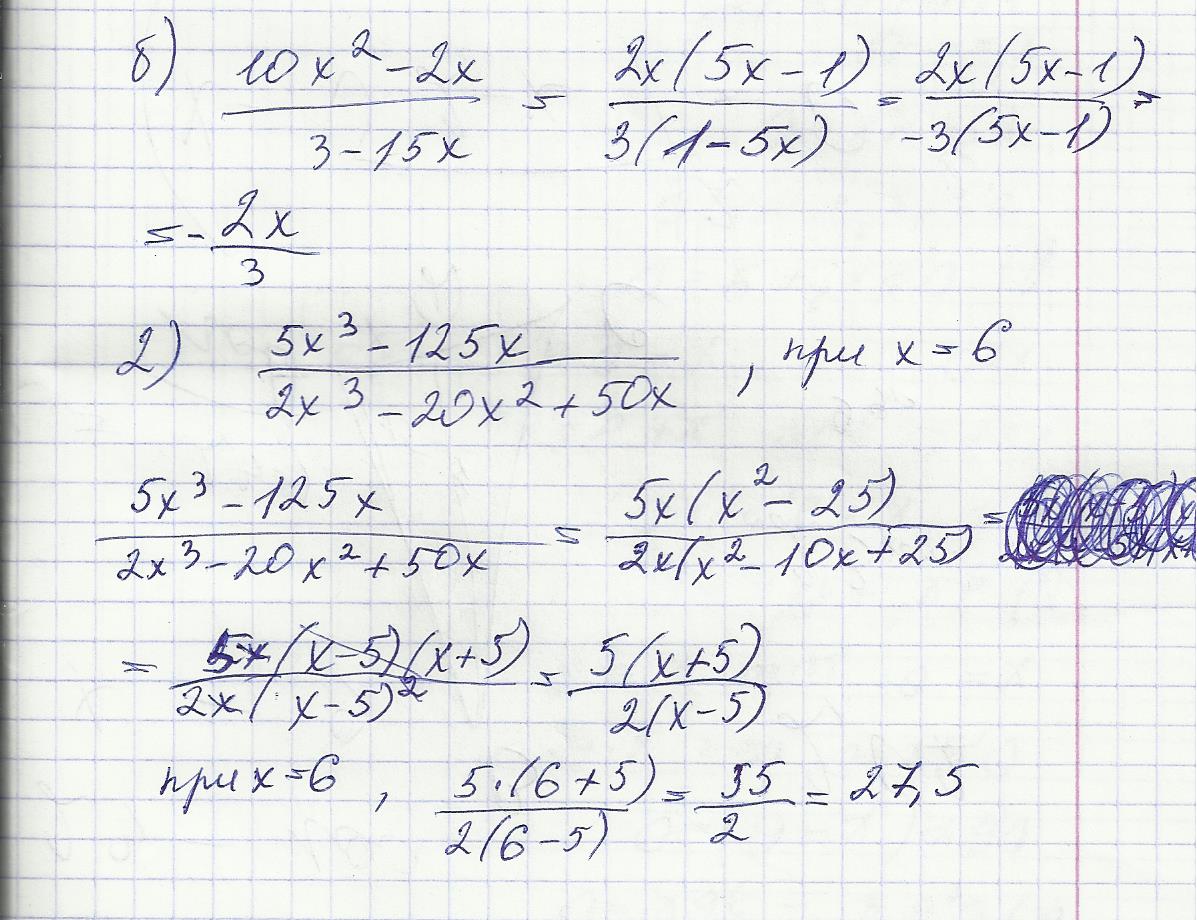 б) (10x² - 2x)/(3 - 15x) = (2x(5x - 1))/(3(1 - 5x)) = (2x(5x - 1))/(-3(5x - 1)) =
= - 2x/3
2) (5x³ - 125x)/(2x³ - 20x² + 50x) , при x = 6
(5x³ - 125x)/(2x³ - 20x² + 50x) = (5x(x² - 25))/(2x(x² - 10x + 25)) =
= (5x(x - 5)(x + 5))/(2x(x - 5)²) = (5(x + 5))/(2(x - 5))
при x = 6 , (5·(6 + 5))/(2(6 - 5)) = 55/2 = 27,5